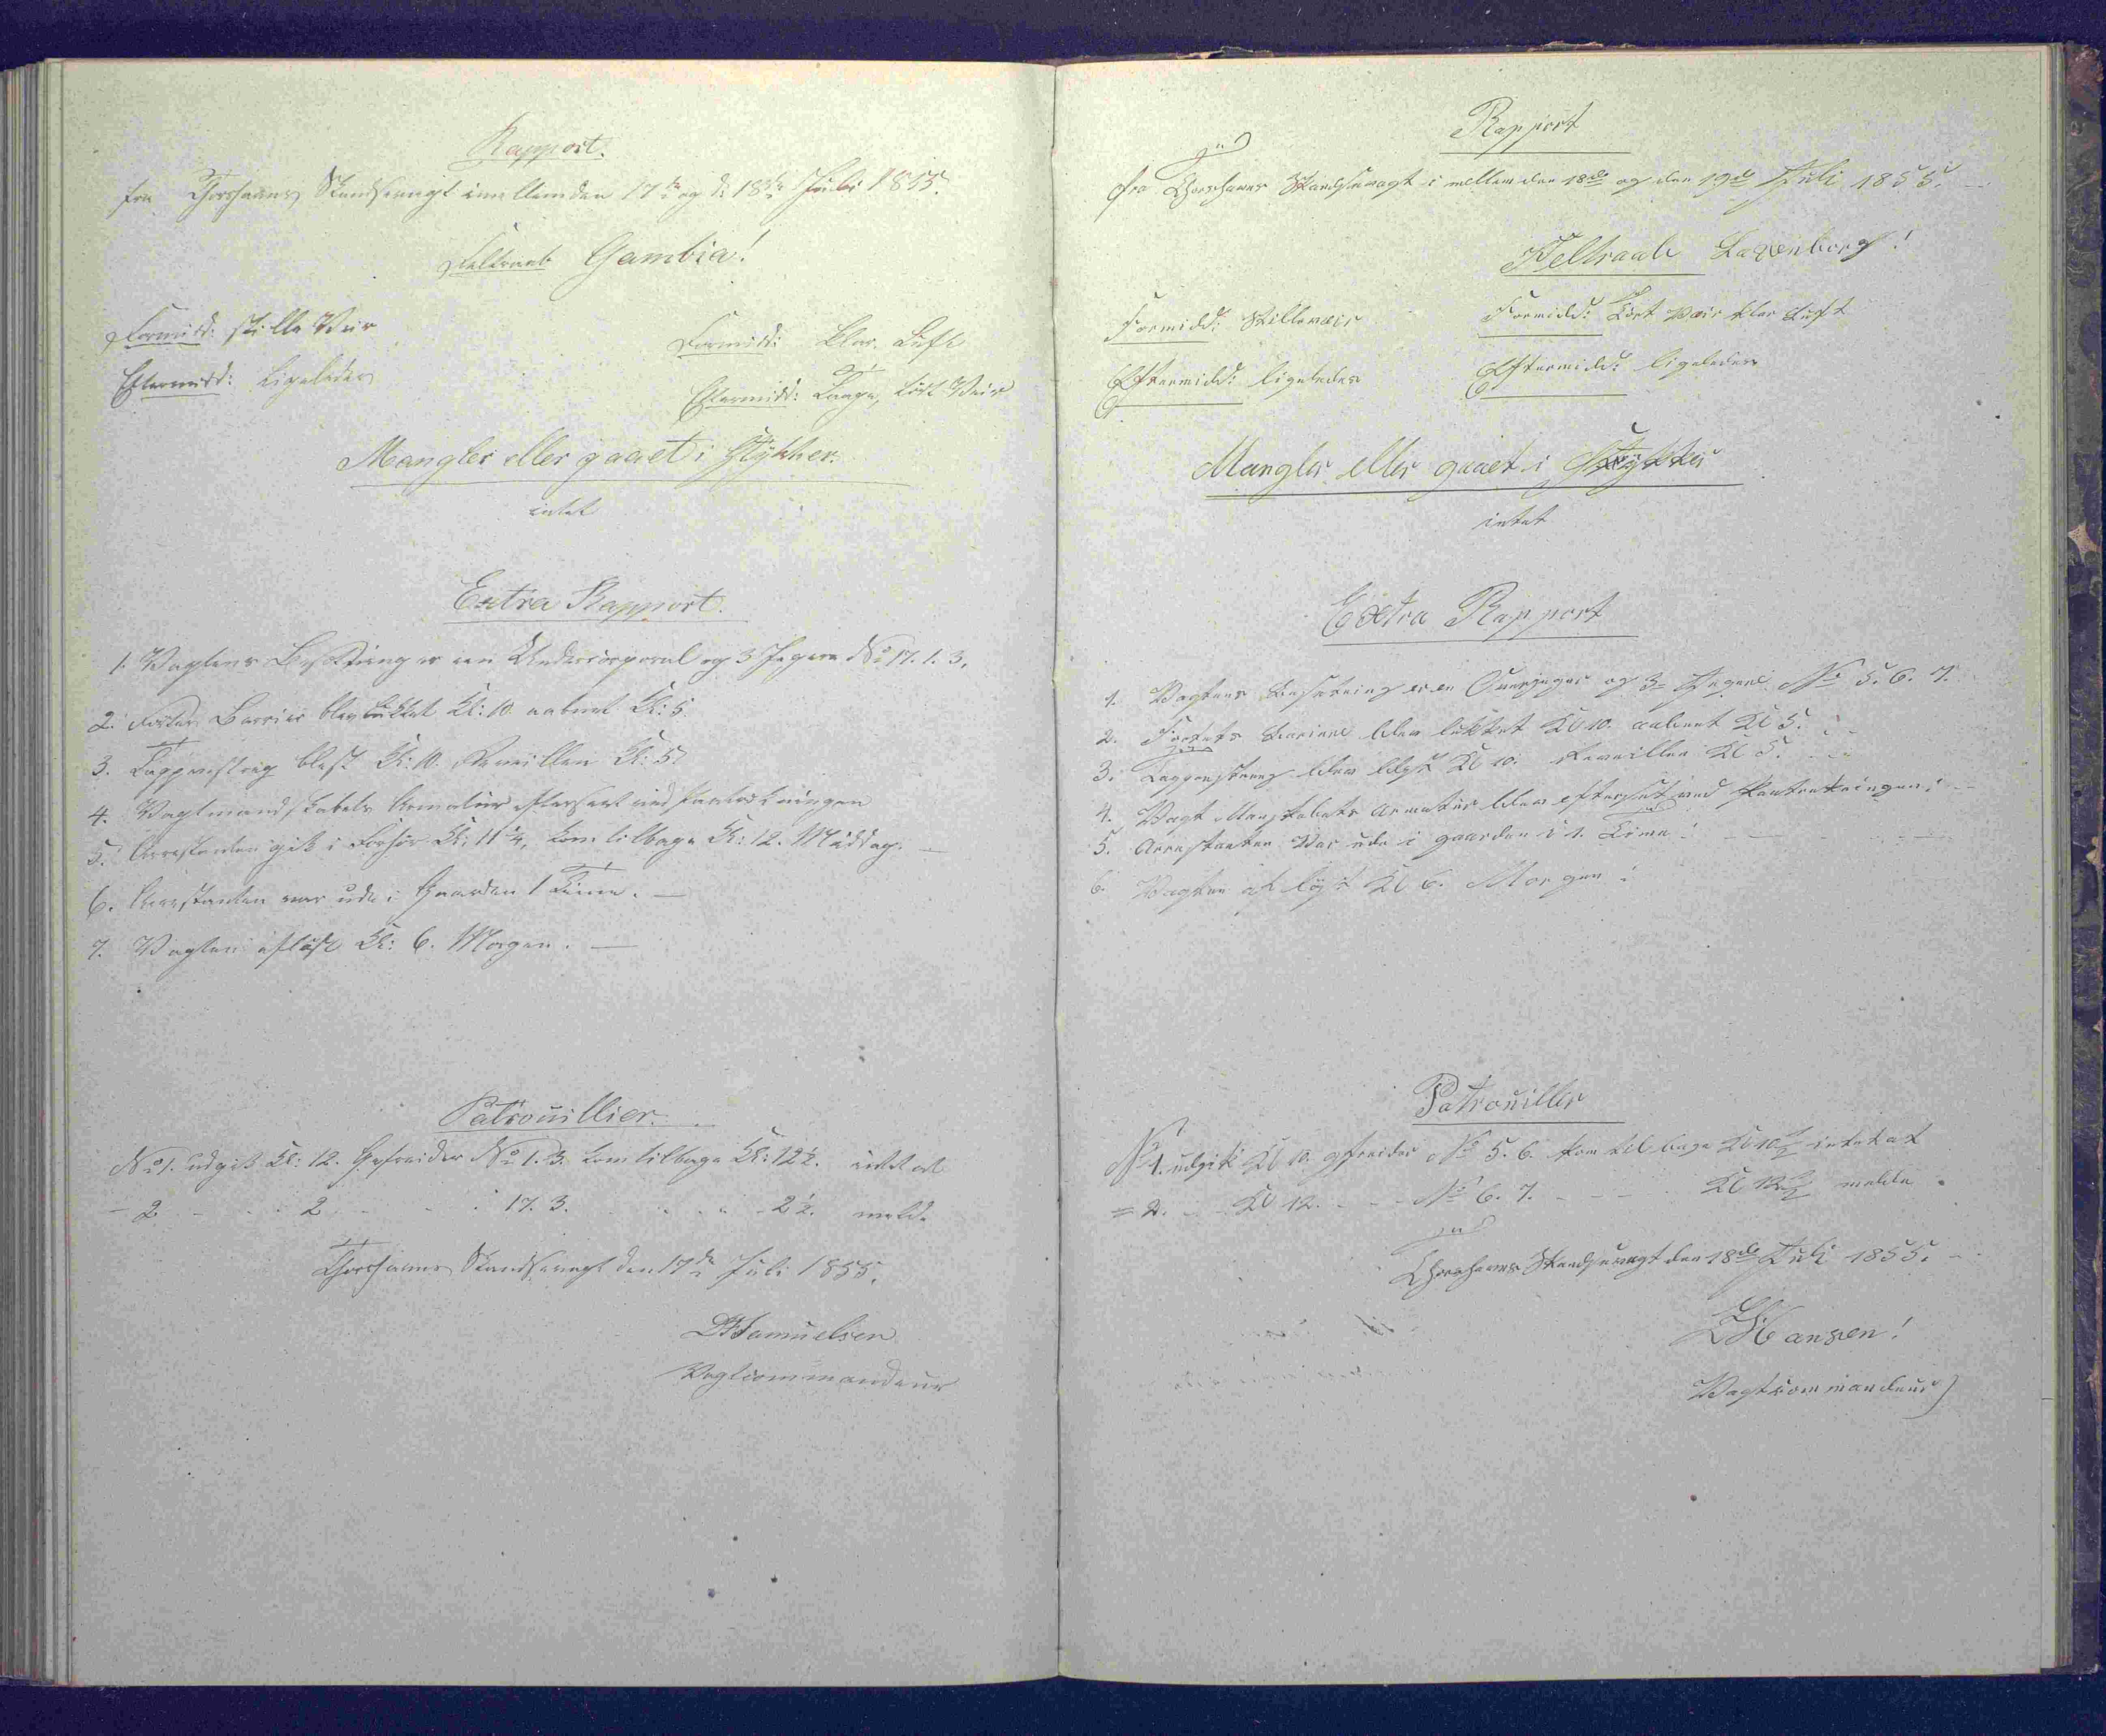 Rapport.
fra Thorshavns Skandsevagt imellem den 17de og d. 18de Juli 1855.
Feltraab Gambia!
Formidd: stille Veir
Formidd: klar Luft
Eftermidd: Ligeledes
Eftermidd: Taage, tört Veir
Mangler eller gaaet i Stykker.
intet
Extra Rapport.
1. Vagtens Besætning er en Undercorporal og 3 Jegere No 17. 1. 3.
2. Fortets Barrier blev lukket Kl: 10. aabnet Kl: 5.
3. Tappenstreg blæst Kl: 10. Reveillen Kl: 5
4. Vagtmandskabets Armatur efterseet ved Fratrædningen
5. Arrestanten gik i Forhör Kl: 11 1/4, kom tilbage Kl: 12. Middag. —
6. Arrestanten var ude i Gaarden 1 Time. —
7. Vagten aflöst Kl: 6. Morgen. —
Patrouillier.
No 1. udgik Kl: 12. Gefreider No 1. 3. kom tilbage Kl: 12 1/2. intet at
- 2 - - 2 - - 17. 3. - - - 2 1/2. melde
Thorshavns Skandsevagt den 17de Juli 1855.
DHSamuelsen
Vagtcommandeur
Rapport
fra Thorshavns Skandsevagt i mellem den 18de og den 19de Juli 1855. -
Feltraab Laxenborg!
Formidd: Stilleveir
Formidd: Tört Veir klar Luft
Eftermidd: ligeledes
Eftermidd: ligeledes
Mangler eller gaaet i Stykker
intet
Extra Rapport
1. Vagtens Besetning er en Overjeger og 3 Jegere No 5. 6. 7.
2. Fortets Bariere blev lukket Kl 10. aabnet Kl 5.
3. Tappenstreg blev blæst Kl 10. Reveillen Kl 5.
4. Vagt Manskabets Armatur blev efterset ved
5. Arrestanten Var ude i gaarden i 1. Time
6. Vagten af löst Kl 6. Morgen
Patrouiller
No 1. udgik Kl 10. gefreider No 5. 6. kom til bage Kl 10 1/2 intet at
= 2. - - Kl 12. - - - No 6. 7. - - - Kl 12 1/2 melde.
Thorshavns Skandsevagt den 18de Juli 1855. -
Hansen!
Vagtkommandeur